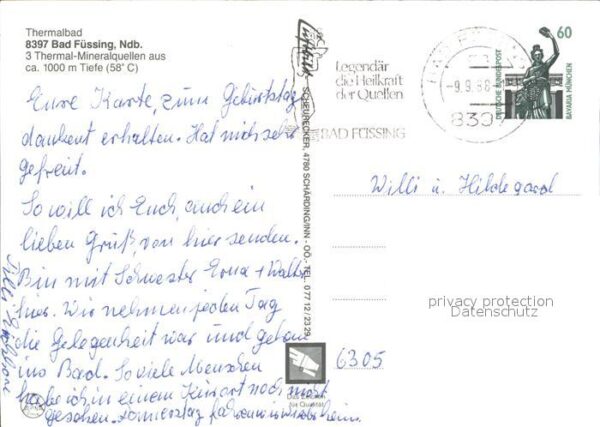 Thermalbad
8397 Bad Füssing, Ndb.
3 Thermal-Mineralquellen aus
ca. 1000 m Tiefe (58° C)
Eure Karte, zum Geburtstag
dankent erhalten. Hat mich sehr
gefreut.
So will ich Euch, auch ein
lieben Gruß, von hier senden.
Bin mit Schwester Erna + Walter
hier. Wir nehmen jeden Tag
die Gelegenheit war und gehen
ins Bad. So viele Menschen
habe ich in einem Kurort noch nicht
gesehen. Donnerstag fahren wir wieder heim.
SCHEURECKER, 4780 SCHÄRDING/INN - OÖ. - TEL. 0 77 12 / 23 29
Legendär
die Heilkraft
der Quellen
BAD FÜSSING
-9.9.88-
8397
60
DEUTSCHE BUNDESPOST
BAVARIA MÜNCHEN
Willi u. Hildegard
privacy protection
Datenschutz
6305
für Qualität